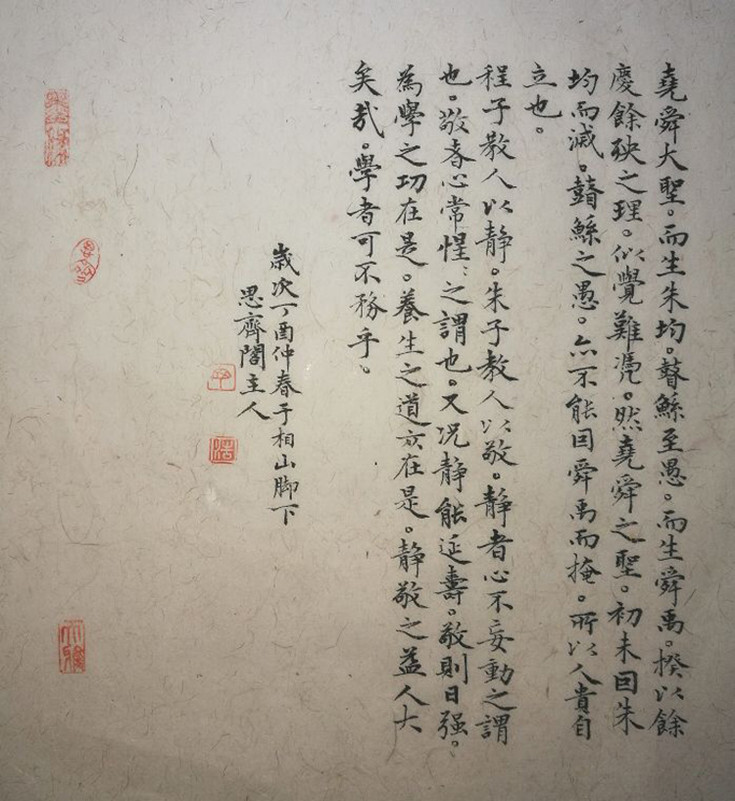 堯舜大聖。而生朱均。瞽鯀至愚。而生舜禹。揆以餘
慶餘殃之理。似覺難憑。然堯舜之聖。初未因朱
均而滅。瞽鯀之愚。亦不能因舜禹而掩。所以人貴自
立也。
程子教人以静。朱子教人以敬。静者心不妄動之謂
也。敬者心常惺〻之謂也。又况静能延壽。敬則日强。
為學之功在是。養生之道亦在是。静敬之益人大
矣哉。學者可不務乎。
歲次丁酉仲春于相山脚下
思齊閣主人